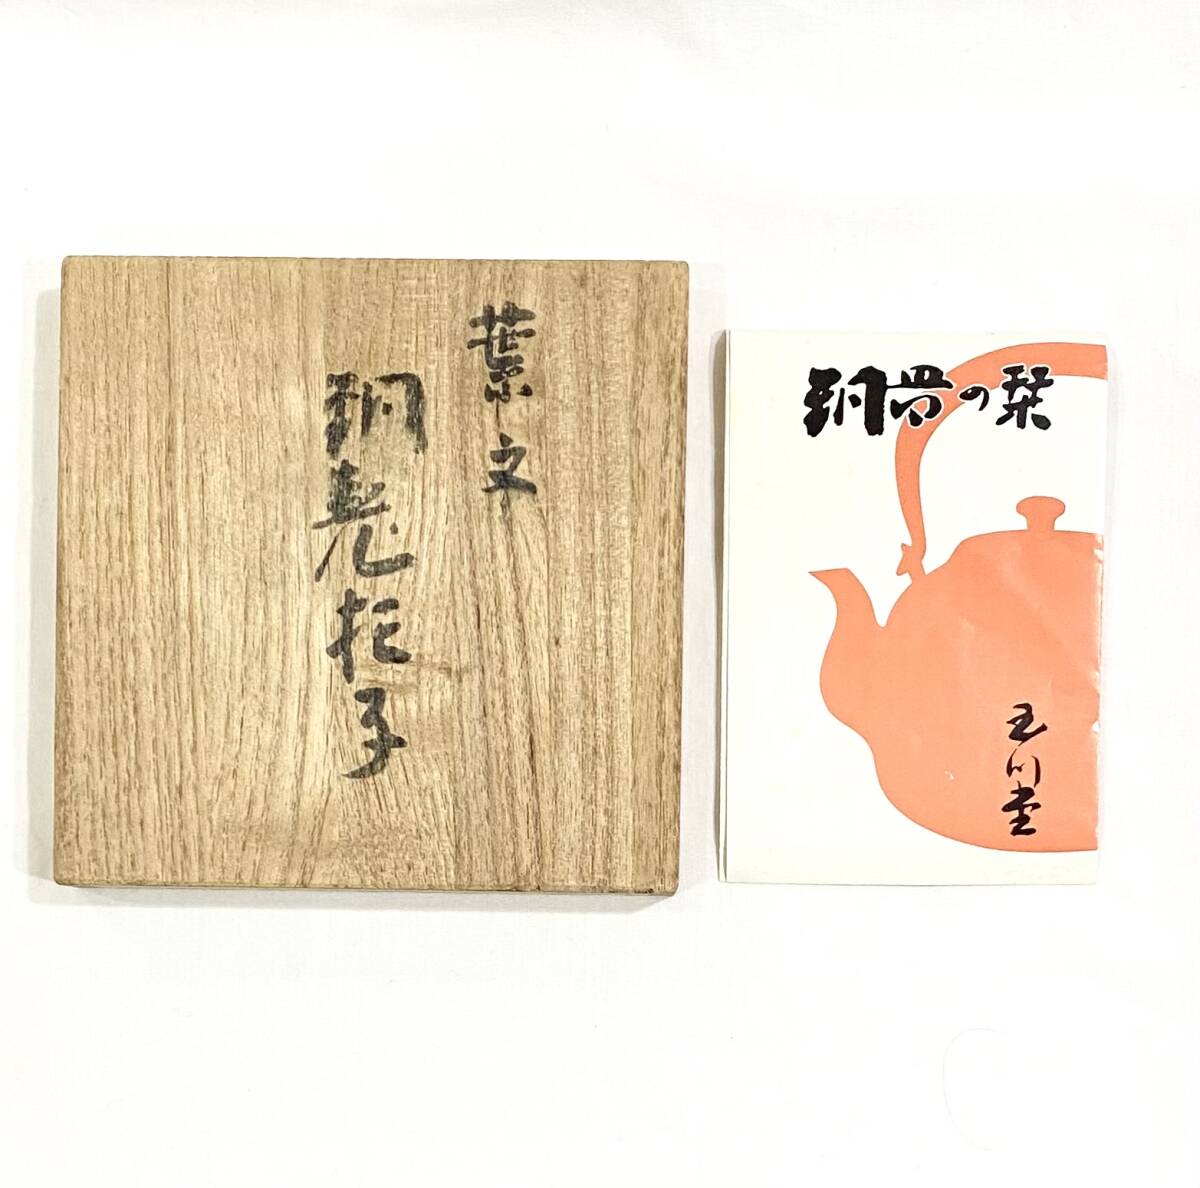 葉文
銅製托子
銅器の栞
玉川堂